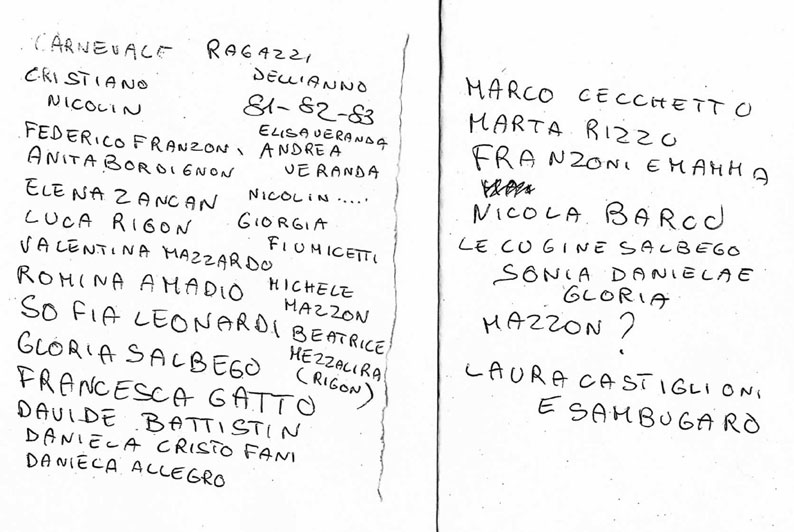 CARNEVALE RAGAZZI
CRISTIANO
NICOLIN
FEDERICO FRANZONI,
ANITA BORDIGNON
ELENA ZANCAN
LUCA RIGON
VALENTINA MAZZARDO
ROMINA AMADIO
SOFIA LEONARDI
GLORIA SALBEGO
FRANCESCA GATTO
DAVIDE BATTISTIN
DANIELA CRISTOFANI
DANIELA ALLEGRO
DELL'ANNO
81-82-83
ELISA VERANDA
ANDREA
VERANDA
NICOLIN.....
GIORGIA
FIUMICETTI
MICHELE
MAZZON
BEATRICE
MEZZALIRA
(RIGON)
MARCO CECCHETTO
MARTA RIZZO
FRANZONI E MAMMA
NICOLA BARCO
LE CUGINE SALBEGO
SONIA DANIELA E
GLORIA
MAZZON?
LAURA CASTIGLIONI
E SAMBUGARO